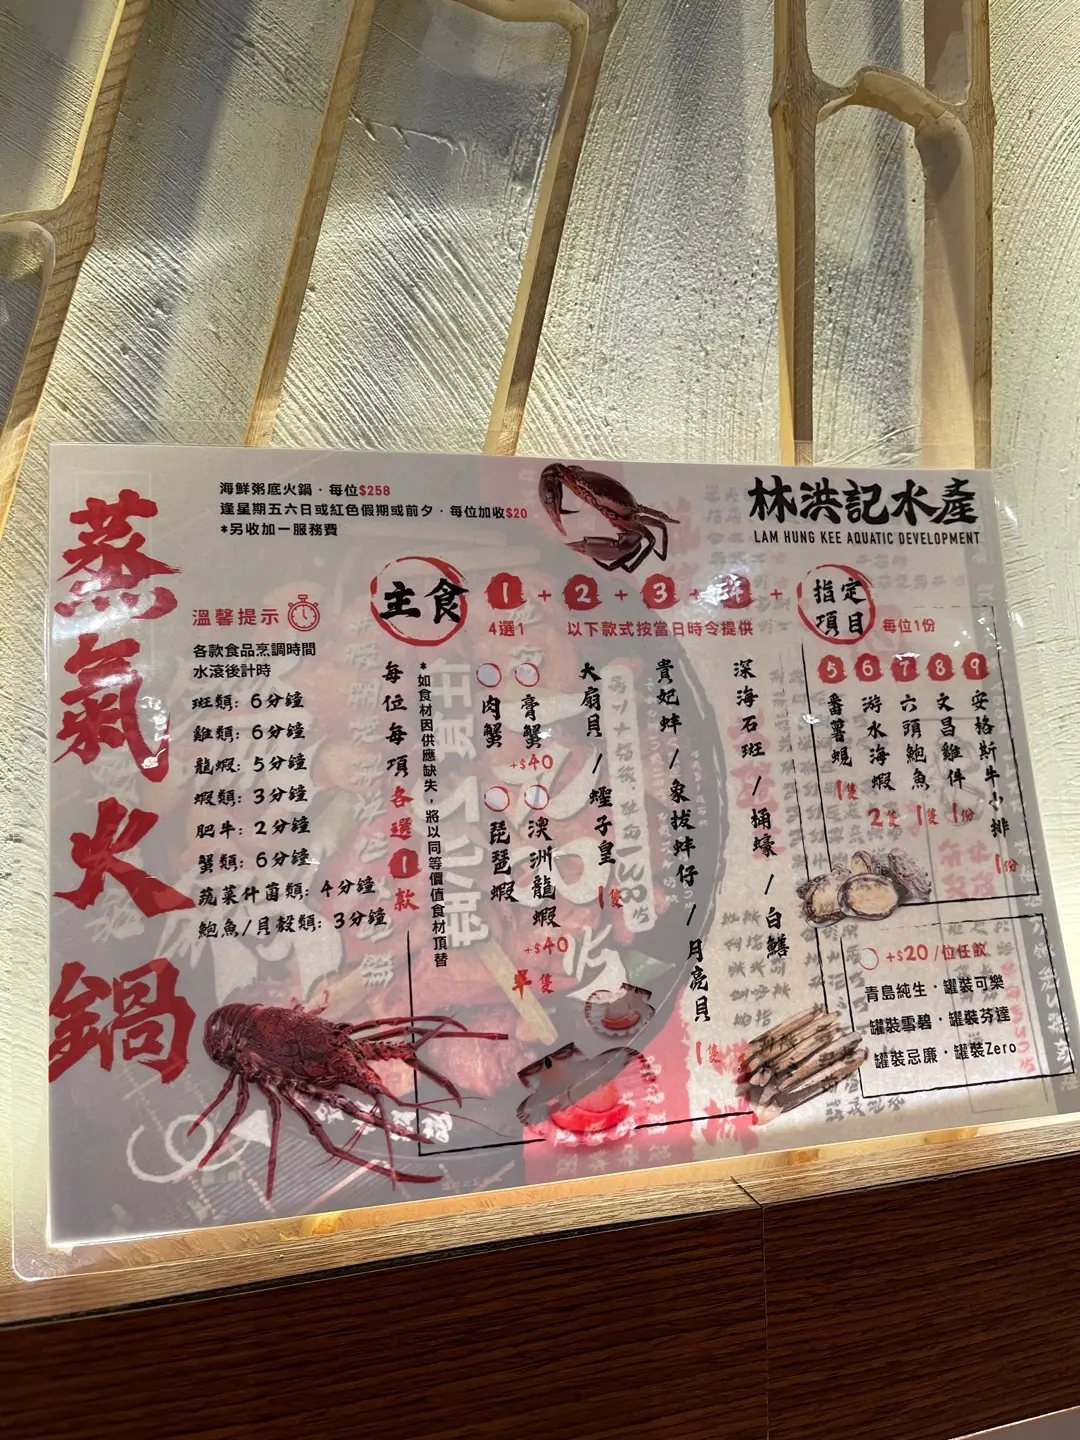 蒸氣火鍋
海鮮粥底火鍋·每位$258
逢星期五六日或紅色假期或前夕·每位加收$20
*另收加一服務費
林洪記水產
LAM HUNG KEE AQUATIC DEVELOPMENT
溫馨提示
各款食品烹調時間
水滾後計時
斑類：6分鐘
雞類：6分鐘
龍蝦：5分鐘
蝦類：3分鐘
肥牛：2分鐘
蟹類：6分鐘
蔬菜什菌類：4分鐘
鮑魚/貝殼類：3分鐘
主食
1 + 2 + 3 + 4 +
4選1
以下款式按當日時令提供
每位每項各選1款
*如食材因供應缺失，將以同等價值食材頂替
肉蟹
膏蟹
+$40
琵琶蝦
澳洲龍蝦
+$40
半隻
大扇貝/蟶子皇 1隻
貴妃蚌/象拔蚌仔/月亮貝 1隻
深海石斑/桶蠔/白鱔
指定項目
每位1份
5 6 7 8 9
番薯蜆 1隻
游水海蝦 2隻
六頭鮑魚 1隻
文昌雞件 1份
安格斯牛小排 1份
+$20/位任飲
青島純生·罐裝可樂
罐裝雪碧·罐裝芬達
罐裝忌廉·罐裝Zero